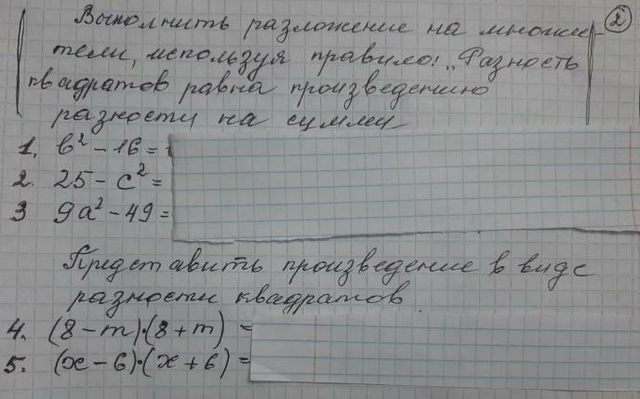 Выполнить разложение на множи-
тели, используя правило: „Разность
квадратов равна произведению
разности на сумму
②
1. b² - 16 =
2. 25 - c² =
3 9a² - 49 =
Представить произведение в виде
разности квадратов
4. (8 - m)·(8 + m) =
5. (x - 6)·(x + 6) =